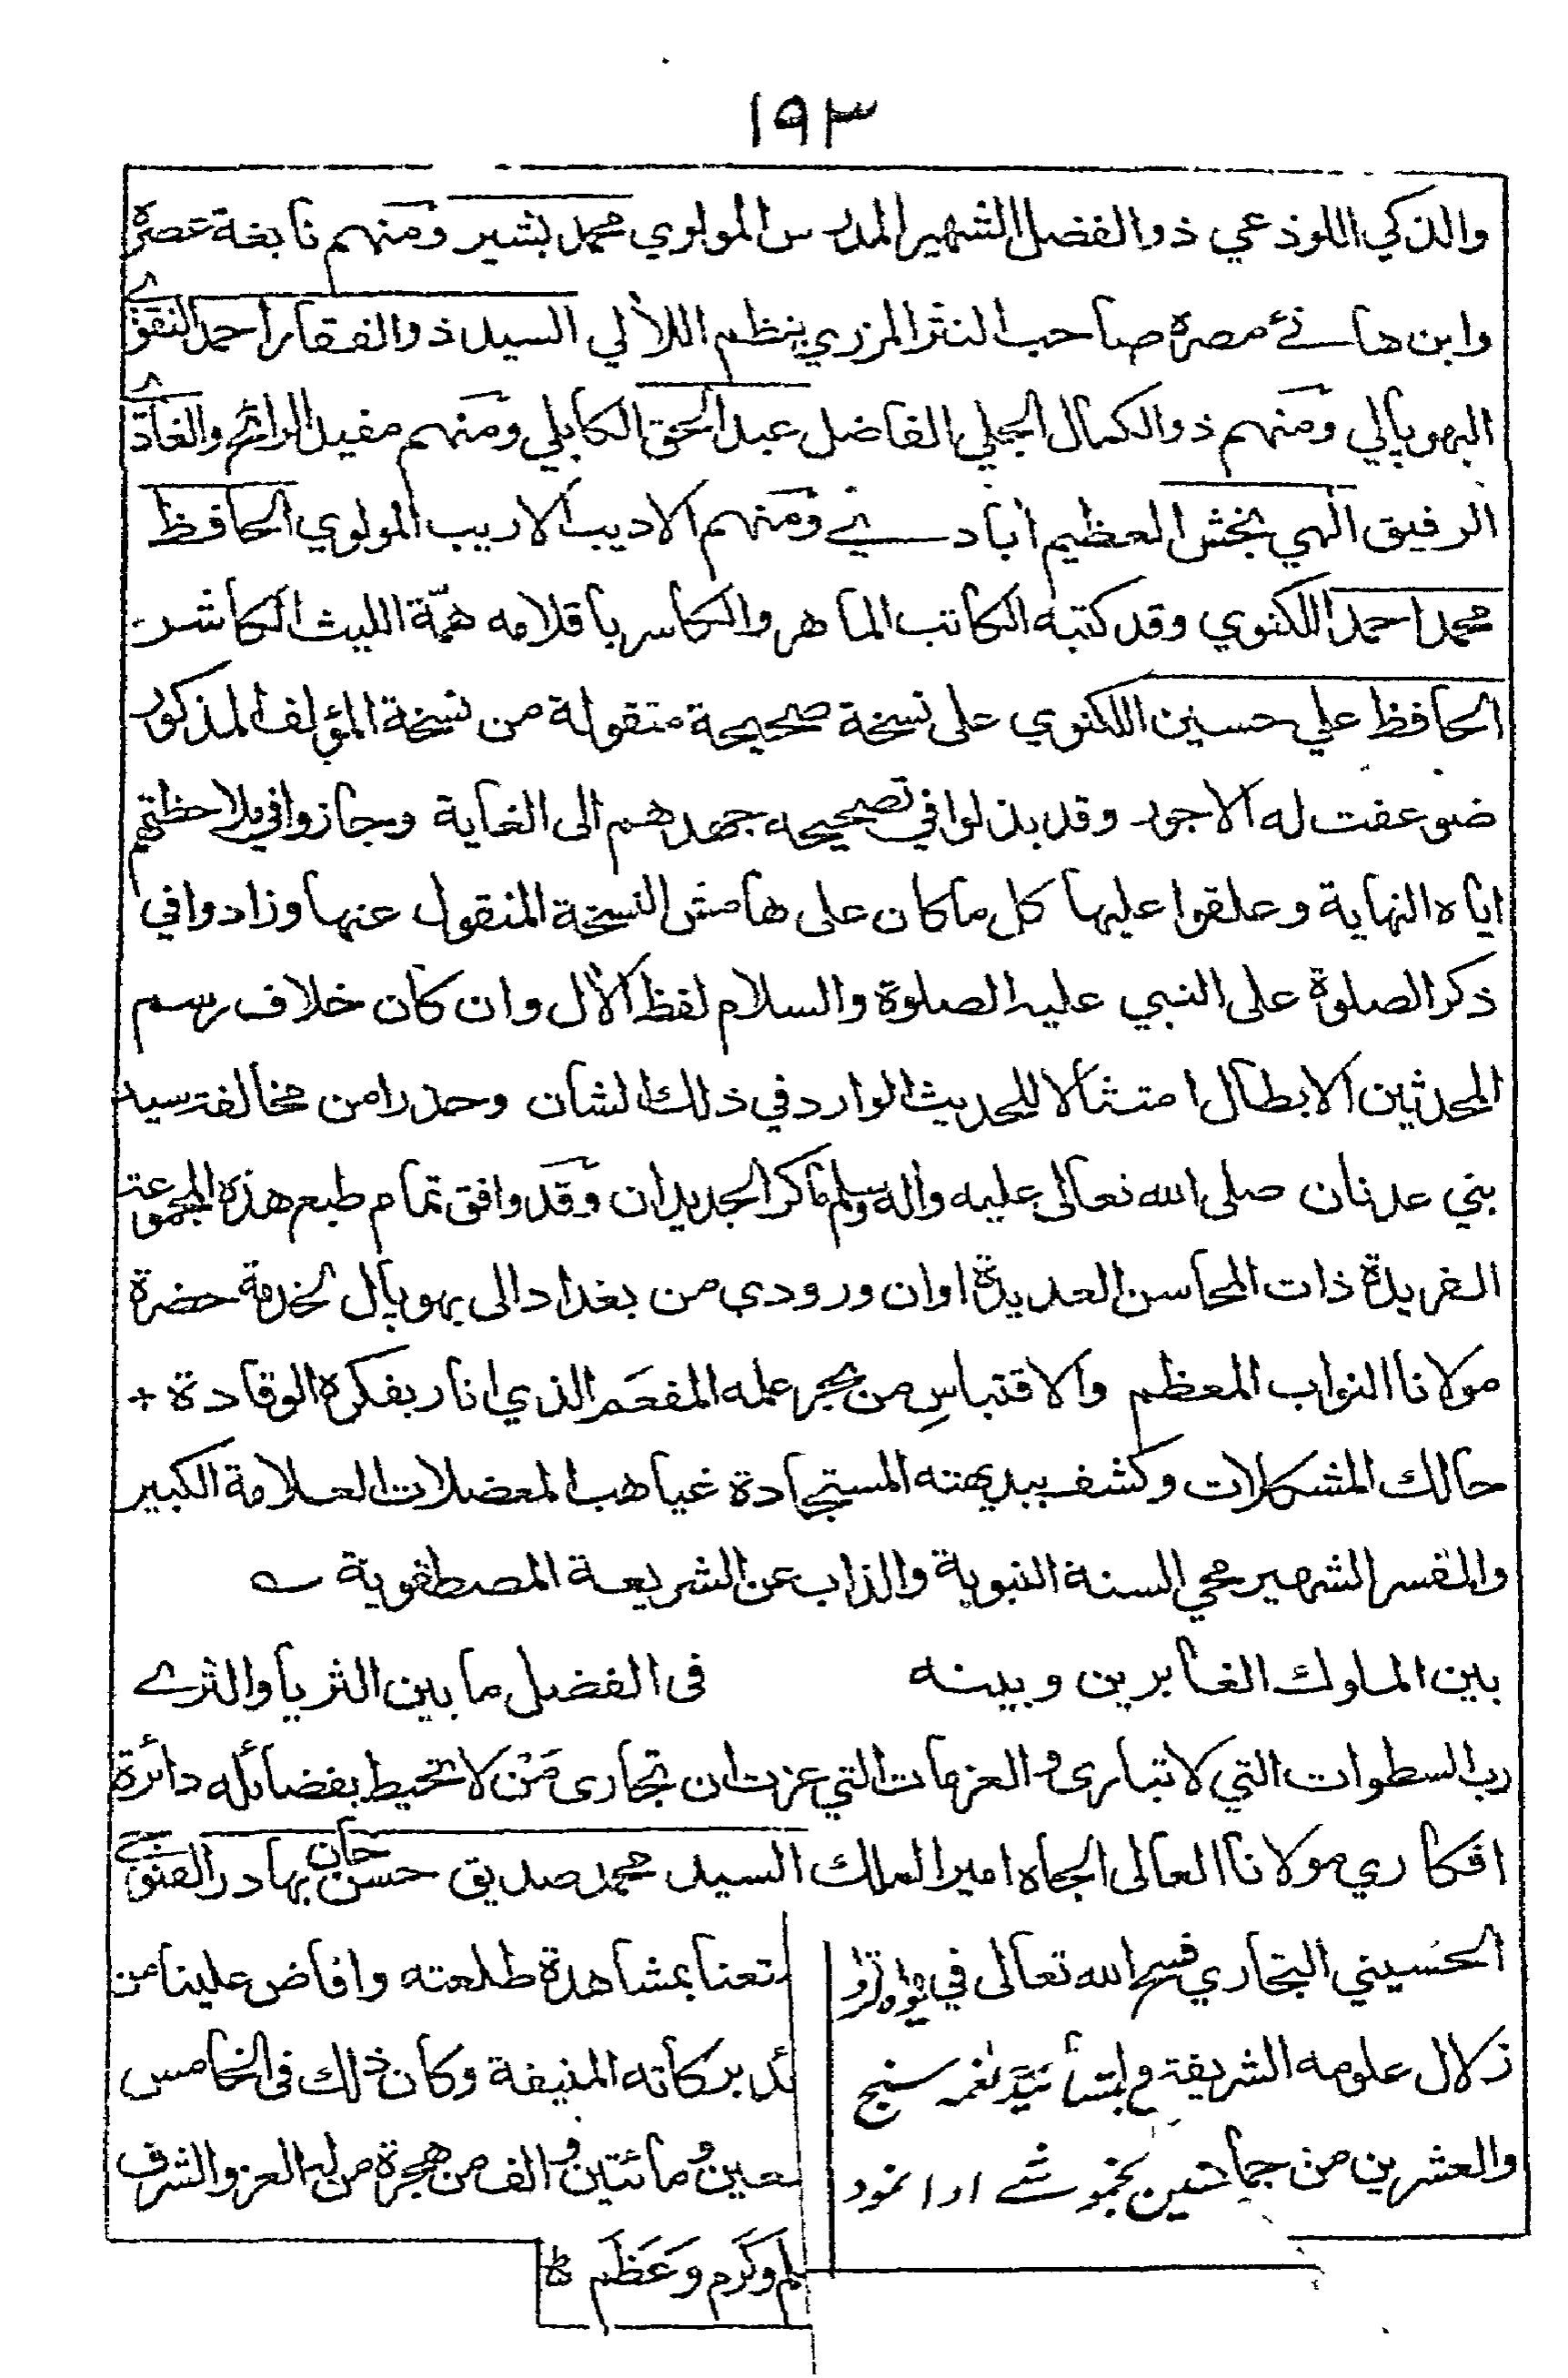 ١٩٣
والذكي اللوذعي ذو الفضل الشهير المدرس المولوي محمد بشير ومنهم نابغة عصره
وابن هانئ مصره صاحب النثر المزري بنظم اللآلي السيد ذو الفقار احمد النقوي
البهوپالي ومنهم ذو الكمال الجلي الفاضل عبد الحق الكابلي ومنهم مفيد الرائح والغادي
الرفيق الهي بخش العظيم ابادي ومنهم الاديب الاريب المولوي الحافظ
محمد احمد اللكنوي وقد كتبه الكاتب الماهر والكاسر باقلامه همّة الليث الكاشر
الحافظ علي حسين اللكنوي على نسخة صحيحة منقولة من نسخة المؤلف المذكور
ضوعفت له الاجور وقد بذلوا في تصحيحه جهدهم الى الغاية وجازوا في ملاحظتهم
اياه النهاية وعلقوا عليها كل ما كان على هامش النسخة المنقول عنها وزادوا في
ذكر الصلوة على النبي عليه الصلوة والسلام لفظ الآل وان كان خلاف رسم
المحدثين الابطال امتثالا للحديث الوارد في ذلك الشان وحذرا من مخالفة سيد
بني عدنان صلى الله تعالى عليه واله وسلم ماكر الجديدان وقد وافق تمام طبع هذه المجموعة
الفريدة ذات المحاسن العديدة اوان ورودي من بغداد الى بهوپال لخدمة حضرة
مولانا النواب المعظم والاقتباسِ من بحر علمه المفعَم الذي انار بفكره الوقادة +
حالك المشكلات وكشف ببديهته المستجادة غياهب المعضلات العلامة الكبير
والمفسر الشهير محي السنة النبوية والذاب عن الشريعة المصطفوية
بين الملوك الغابرين وبينه في الفضل ما بين الثريا والثرى
رب السطوات التي لا تبارى والعزمات التي عزت ان تجارى مَنْ لا تحيط بفضائله دائرة
افكاري مولانا العالى الجاه امير الملك السيد محمد صديق حسن خان بهادر القنوجي
الحُسيني البخاري فسح الله تعالى في متعنا بمشاهدة طلعته وافاض علينا من
زلال علومه الشريفة ئد بركاته المنيفة وكان ذلك في الخامس
والعشرين من جما عين ومائتين والف من هجرة من له العز والشرف
لم وكرم وَعَظَم